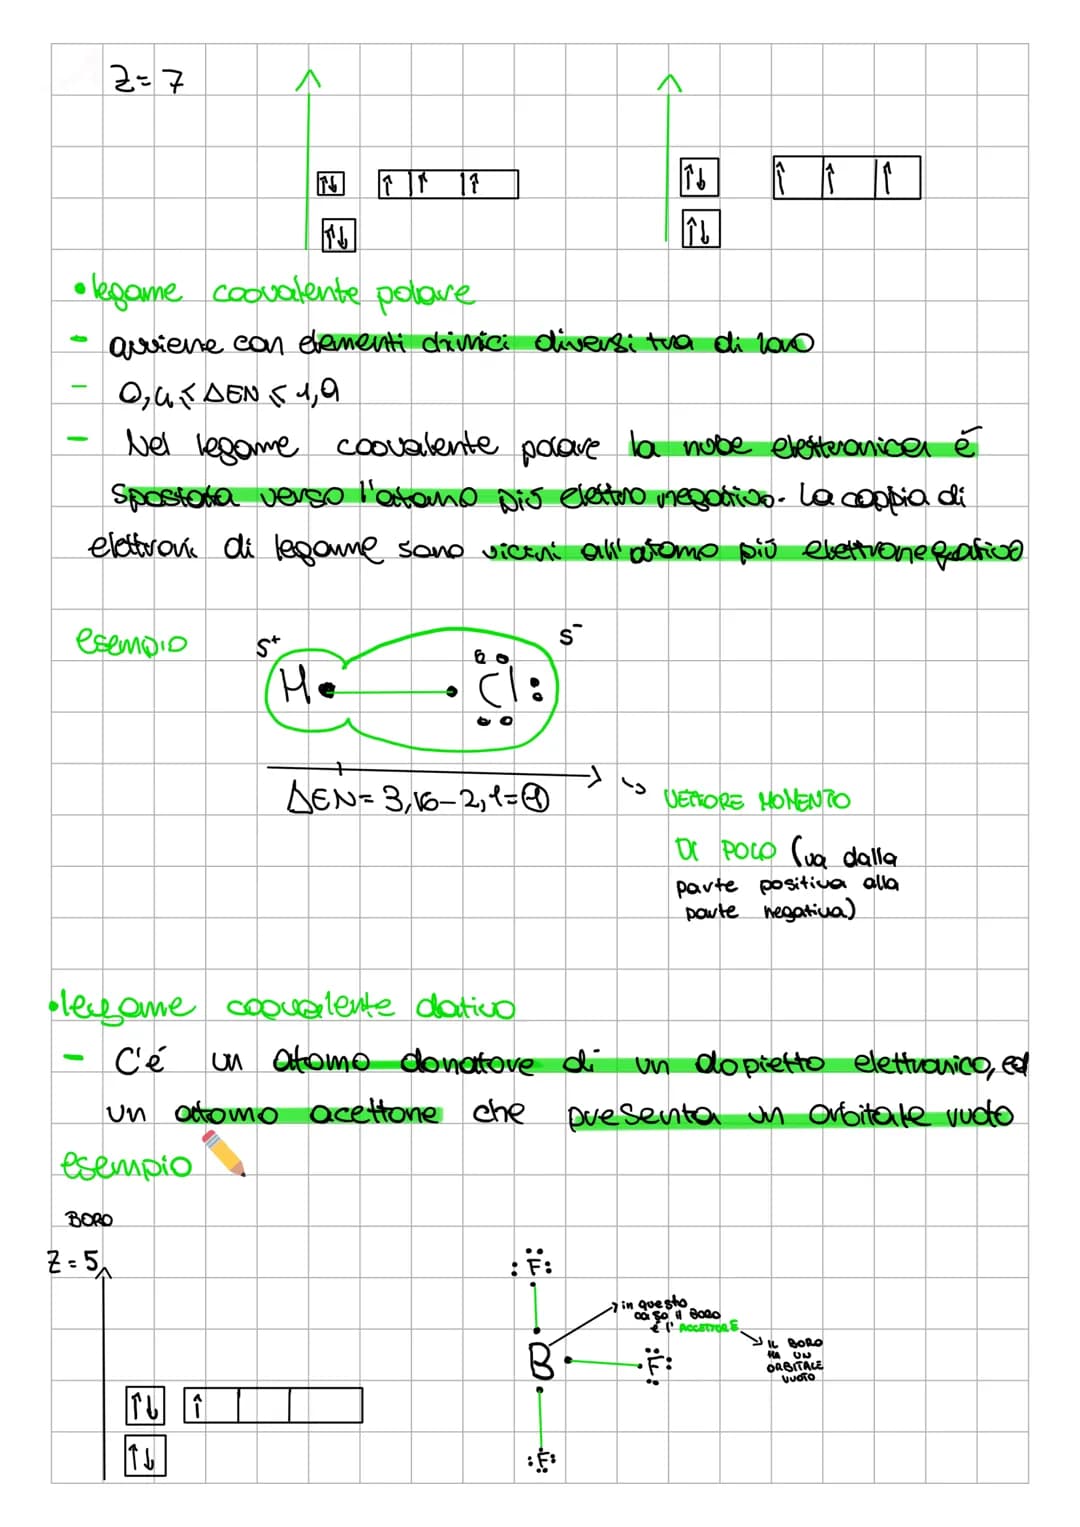 Z=7
• legame coovalente polare
- avviene con elementi chimici diversi tra di loro
- 0,4 ≤ ΔEN ≤ 1,9
- Nel legame coovalente polare la nube elettronica é
spostata verso l'atomo più elettro negativo. La coppia di
elettroni di legame sono vicini all'atomo più elettronegativo
esempio
S⁺ S⁻
H Cl
ΔEN= 3,16-2,1=1
VETTORE MOMENTO
DI POLO (va dalla
parte positiva alla
parte negativa)
• legame coovalente dativo
- C'é un atomo donatore di un dopietto elettronico, ed
un atomo acettone che presenta un orbitale vuoto
esempio
BORO
Z=5
F
in questo
caso il BORO
é l'ACCETTORE
IL BORO
HA UN
ORBITALE
VUOTO
B F
F